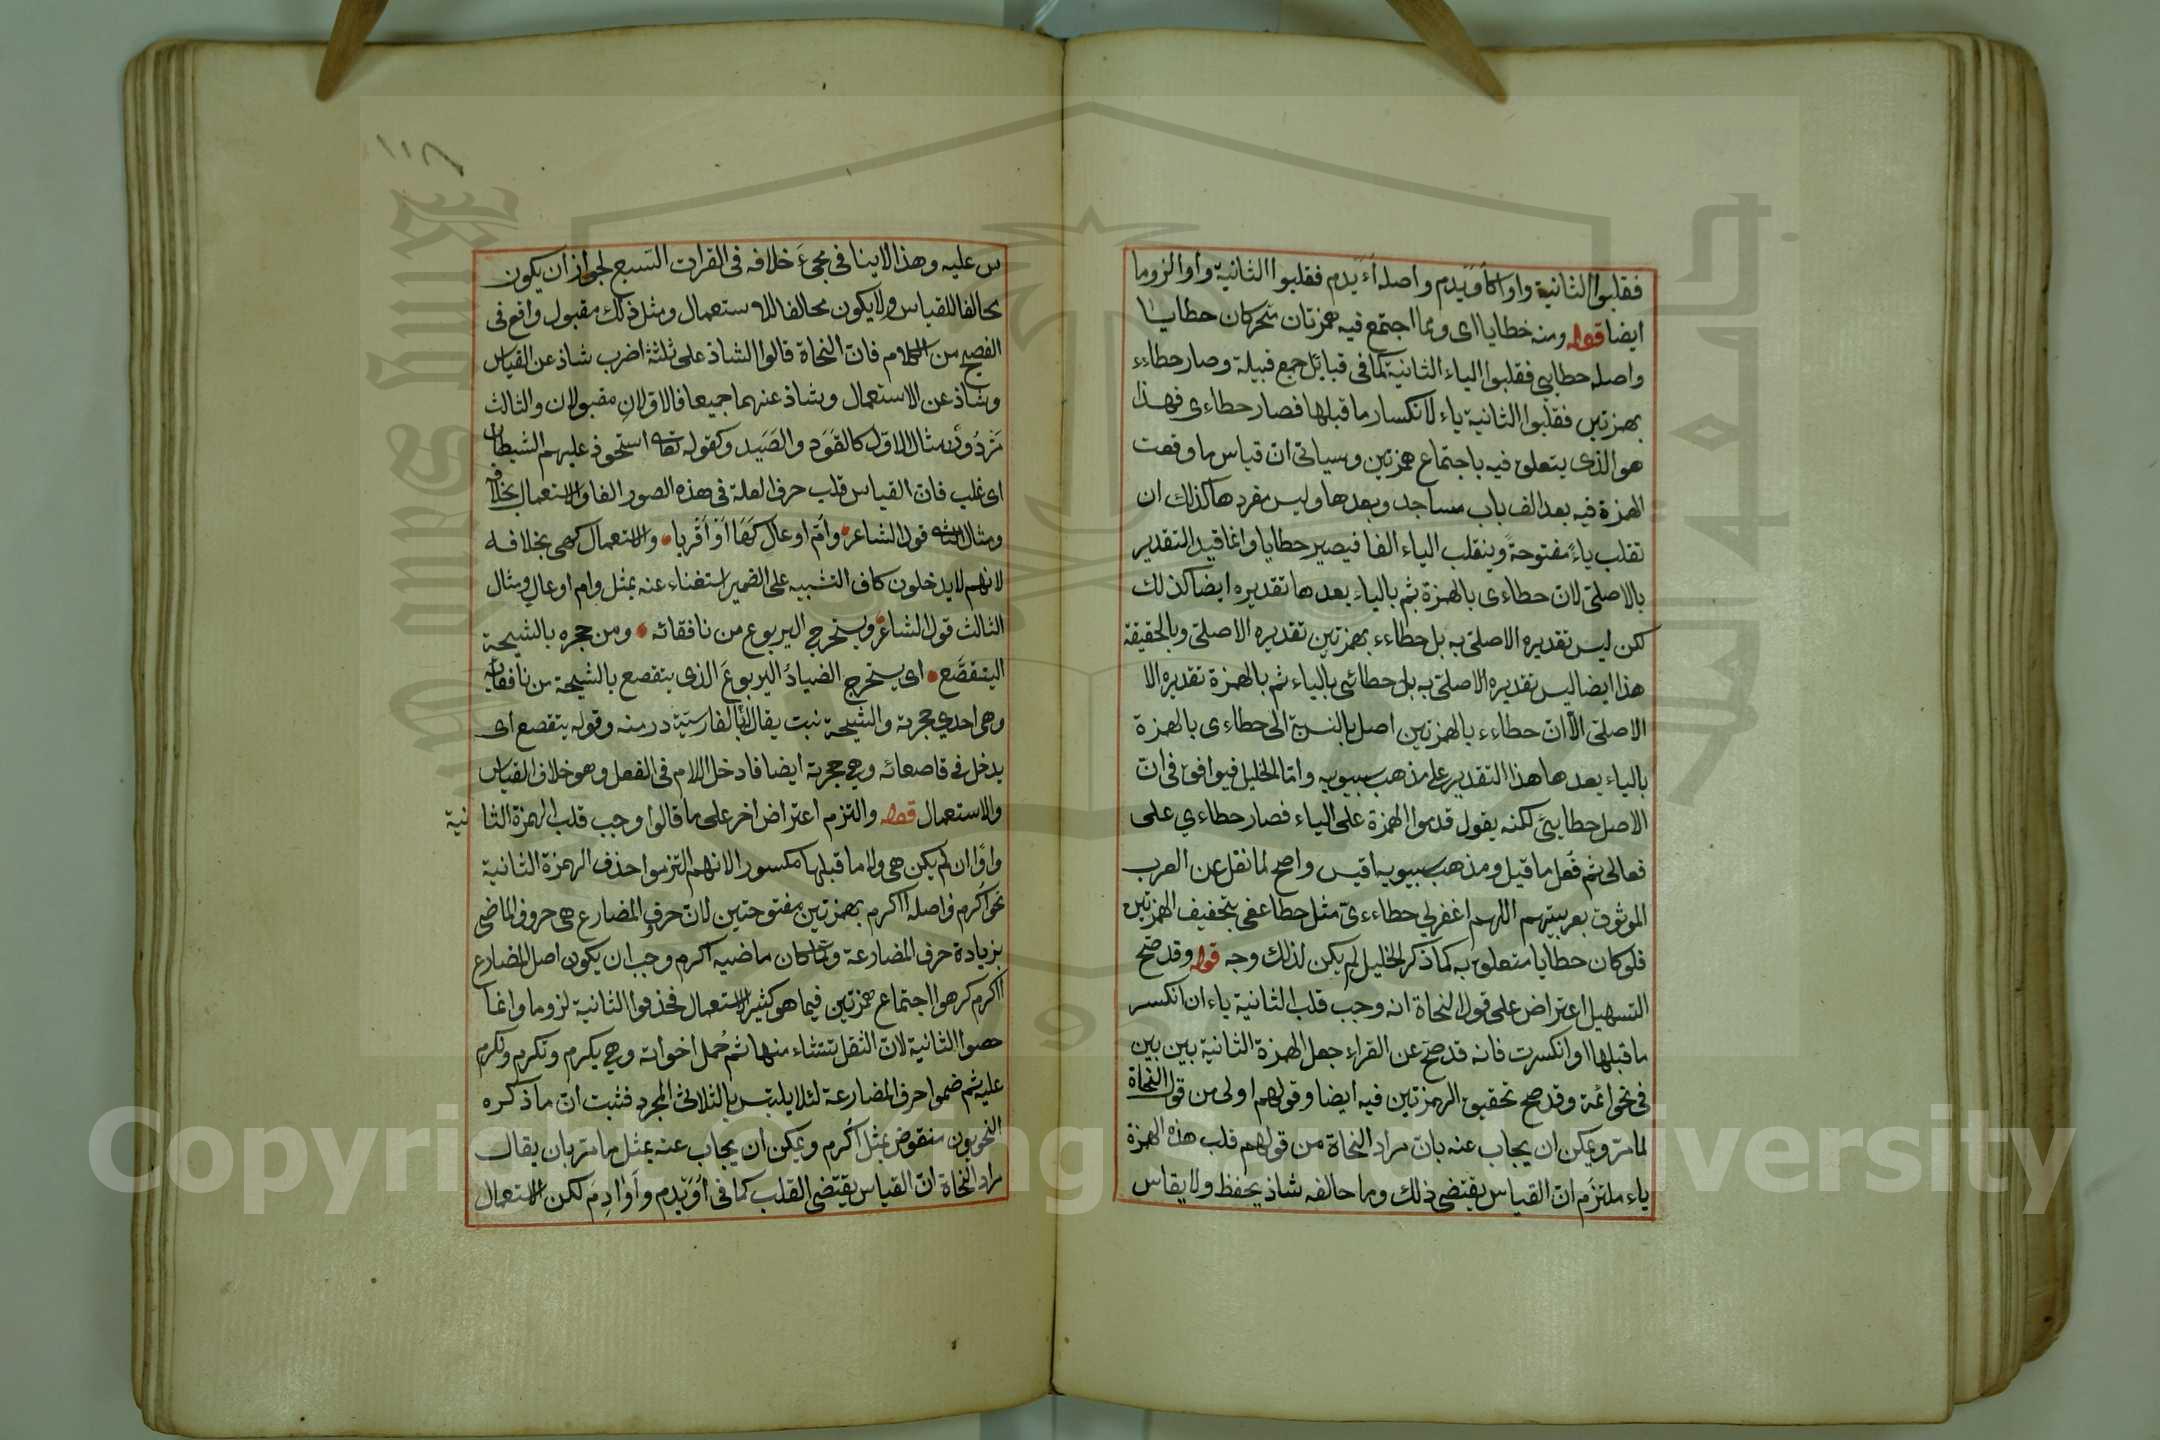 فقلبوا الثانية واوا كأويدم واصله أءيدم فقلبوا الثانية واوا لزوما
ايضا قوله ومنه خطايا اى ومما اجتمع فيه همزتان تتحركان حطايا
واصله حطايئ فقلبوا الياء الثانية كما فى قبائل جمع قبيلة وصار حطاءء
بهمزتين فقلبوا الثانية ياء لانكسار ما قبلها فصار حطاءى فهذا
هو الذى يتعلق فيه باجتماع همزتين وسياتى ان قياس ما وقعت
الهمزة فيه بعد الف باب مساجد وبعدها وليس مفردها كذلك ان
تقلب ياءً مفتوحةً وينقلب الياء الفا فيصير حطايا وانما قيد التقدير
بالاصلى لان حطاءى بالهمزة ثم بالياء بعدها تقديره ايضا كذلك
لكن ليس تقديره الاصلى به بل حطاءء بهمزتين تقديره الاصلى وبالحقيقة
هذا ايضا ليس تقديره الاصلى به بل حطائى بالياء ثم بالهمزة تقديره الا
الاصلى الا ان حطاءء بالهمزتين اصل بالنسبة الى حطاءى بالهمزة
بالياء بعدها هذا التقدير على مذهب سيبويه واما الخليل فيوافق فى ان
الاصل حطايئ لكنه يقول قدموا الهمزة على الياء فصار حطاءي على
فعالى ثم فعل ما قيل ومذهب سيبويه اقيس واصح لما نقل عن العرب
الموثوق بعربيتهم اللهم اغفرلى حطاءءى مثل حطاععى بتحفيف الهمزتين
فلو كان حطايا متعلق به كما ذكر الخليل لم يكن لذلك وجه قوله وقد صح
التسهيل اعتراض على قول النحاة انه وجب قلب الثانية ياء ان انكسر
ما قبلها او انكسرت فانه قد صح عن القراء جعل الهمزة الثانية بين بين
فى نحو ائمة وقد صح تحقيق الهمزتين فيه ايضا وقولهم اولى من قول النحاة
لما مر ويمكن ان يجاب عنه بان مراد النحاة من قولهم قلب هذه الهمزة
ياء ملتزم ان القياس يقتضى ذلك وما حالفه شاذ يحفظ ولا يقاس
١١٨
س عليه وهذا لا ينافى مجىء خلافه فى القرات السبع لجواز ان يكون
محالفا للقياس ولا يكون محالفا للاستعمال ومثل ذلك مقبول واقع فى
الفصيح من الكلام فان النحاة قالوا الشاذ على ثلثة اضرب شاذ عن القياس
وشاذ عن الاستعمال وشاذ عنهما جميعا فالاولان مقبولان والثالث
مردود ومثال الاول كالقَوَد والصَيَد وكقوله تعالى استحوذ عليهم الشيطان
اى غلب فان القياس قلب حرف العلة فى هذه الصور الفا والاستعمال بخلافه
ومثال الثانى قول الشاعر وام اوعال كها او اقربا والاستعمال كهى بخلافه
لانهم لا يدخلون كاف التشبيه على الضمير استغناء عنه بمثل وام اوعال ومثال
الثالث قول الشاعر ويستخرج اليربوع من نافقائه ومن جحره بالشيحة
اليتقصع اى يستخرج الضيادُ اليربوعَ الذى يتقصع بالشيحة من نافقائه
وهى احدي حجرته والشيحة نبت يقال لها بالفارسية درمنه وقوله يتقصع اى
يدخل فى قاصعائه وهي حجرته ايضا فادخل اللام فى الفعل وهو خلاف القياس
والاستعمال قوله والتزم اعتراض اخر على ما قالوا وجب قلب الهمزة الثا نية
واوًا ان لم يكن هى ولا ما قبلها مكسورا لانهم التزموا حذف الهمزة الثانية
نحو اُكرم واصله ااكرم بهمزتين مفتوحتين لان حرف المضارع هى حروف الماضى
بزيادة حرف المضارعة ولما كان ماضيه اكرم وجب ان يكون اصل المضارع
ااكرم كرهوا اجتماع همزتين فيما هو كثير الاستعمال فحذفوا الثانية لزوما وانما
حصوا الثانية لان الثقل تنشاء منها ثم حُمل اخواته وهي يكرم وتكرم ونكرم
عليه ثم ضموا حرف المضارعة لئلا يلبس بالثلاثى المجرد فثبت ان ما ذكره
النحويون منقوض بمثل اُكرم ويمكن ان يجاب عنه بمثل ما مر بان يقال
مراد النحاة ان القياس يقتضى القلب كما فى اويدم واوادم لكن الاستعمال
Copyright © King Saud University